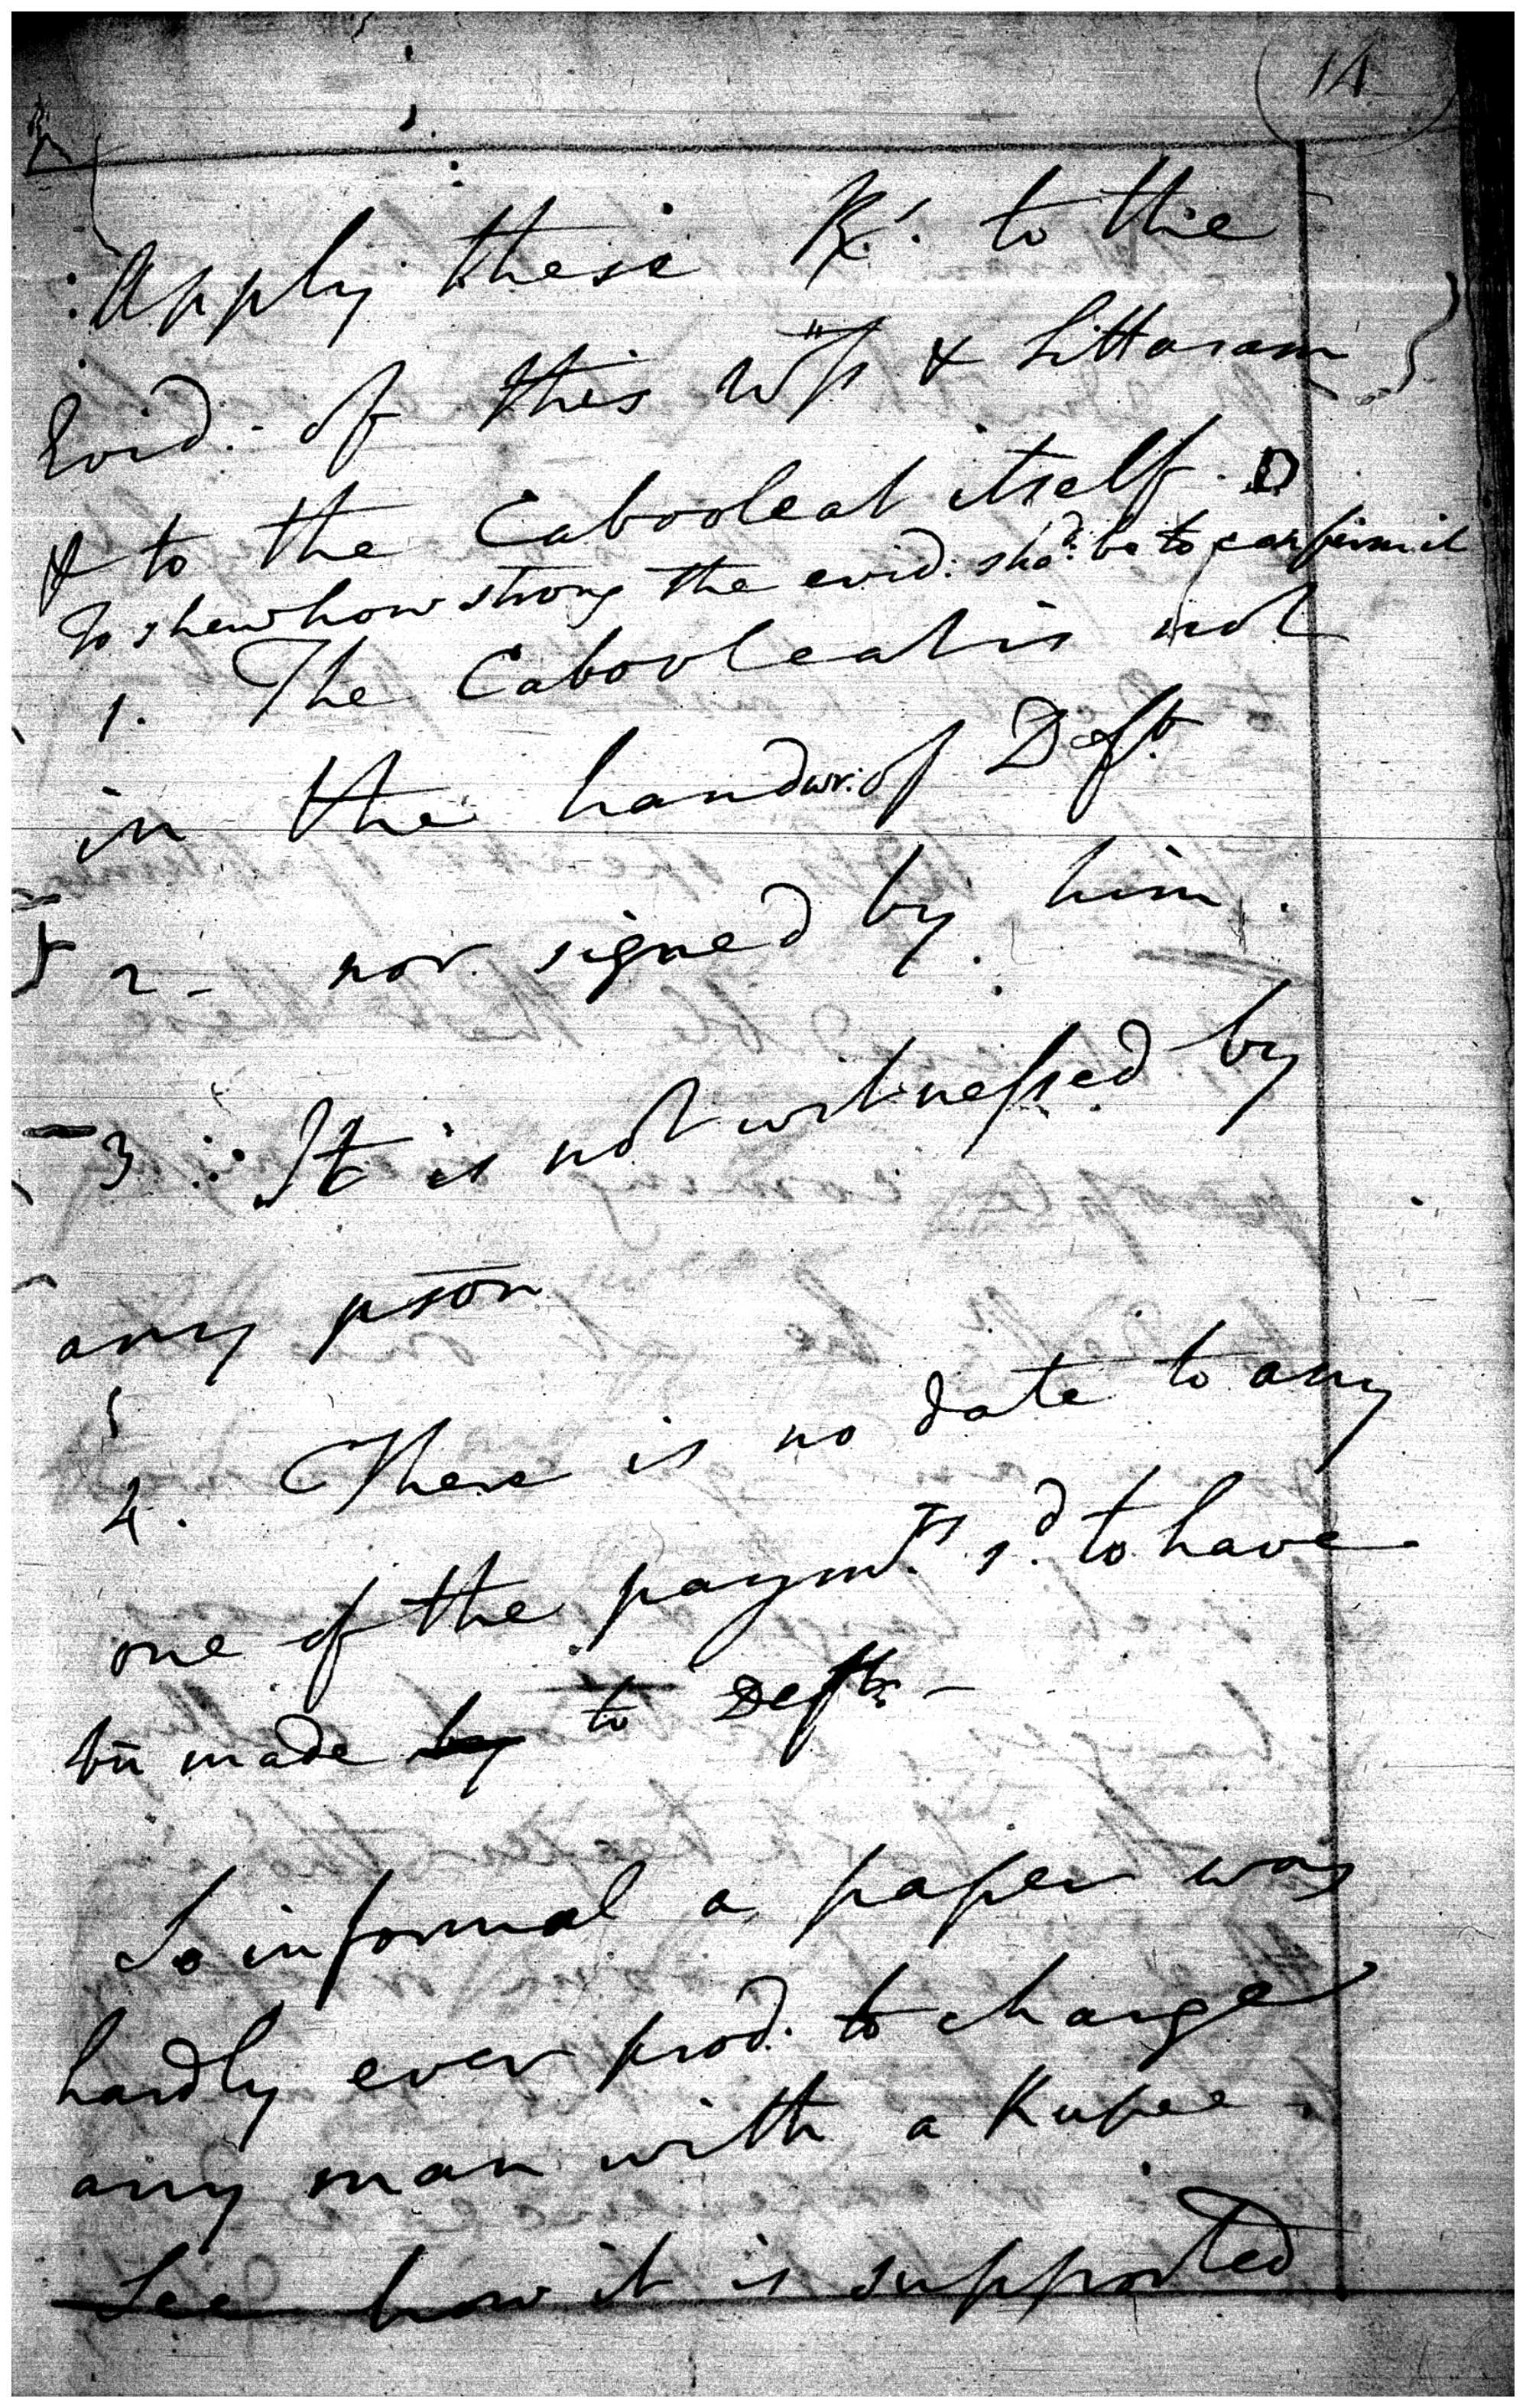 14
Apply these Rs. to the
Evid. of this Wss & Sittaram
& to the Cabooleat itself.
To shew how strong the evid: shod. be to confirm it
1. The Cabooleat is not
in the handwr: of Deft.
2 - nor signed by him.
3 : It is not witnessed by
any pson
4. There is no date to any
one of the paymts. sd. to have
bn made by to Deft. -
So informal a paper was
hardly ever prod. to charge
any man with a Rupee -
See how it is supported